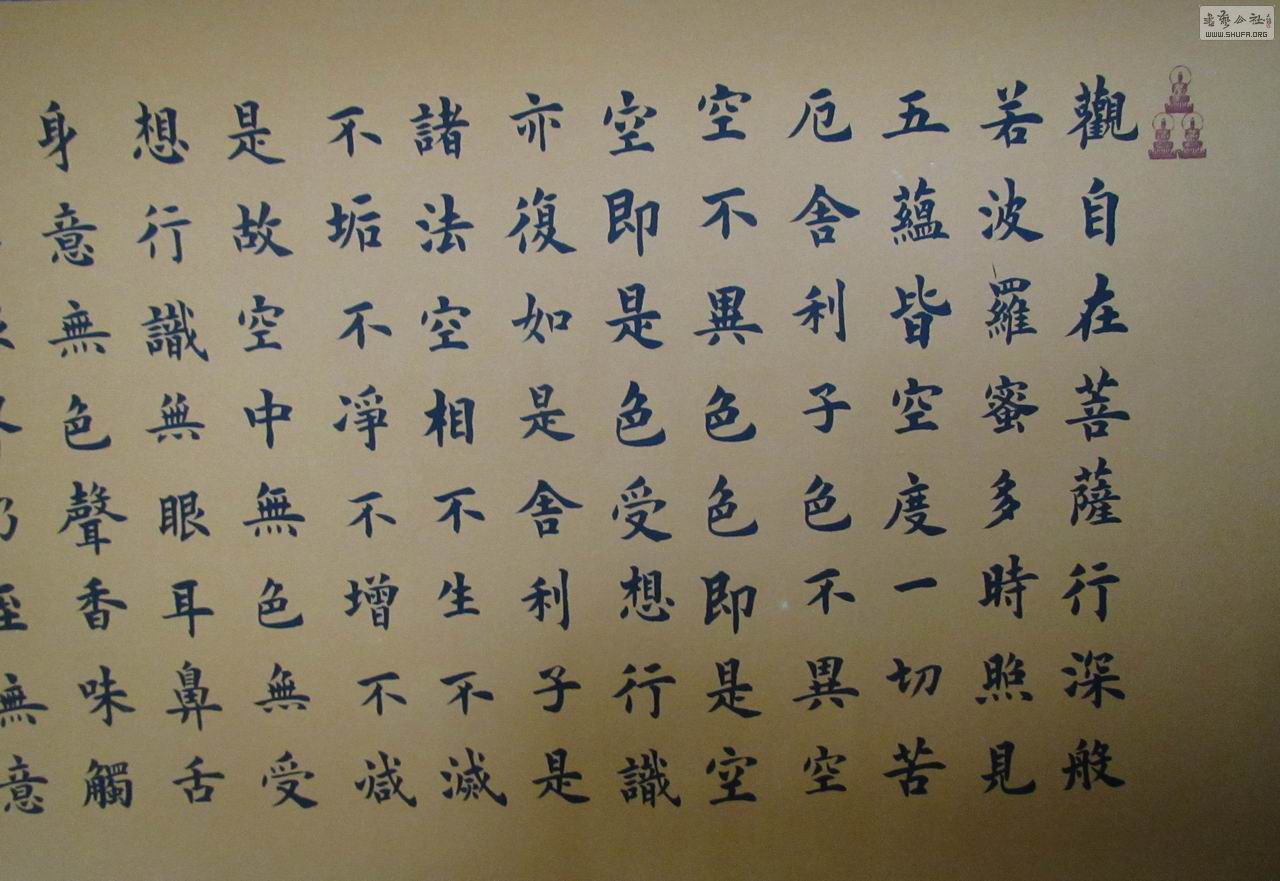 觀自在菩薩行深般
若波羅蜜多時照見
五蘊皆空度一切苦
厄舍利子色不異空
空不異色色即是空
空即是色受想行識
亦復如是舍利子是
諸法空相不生不滅
不垢不凈不增不减
是故空中無色無受
想行識無眼耳鼻舌
身意無色聲香味觸
乃至無意
書藝公社
WWW.SHUFA.ORG